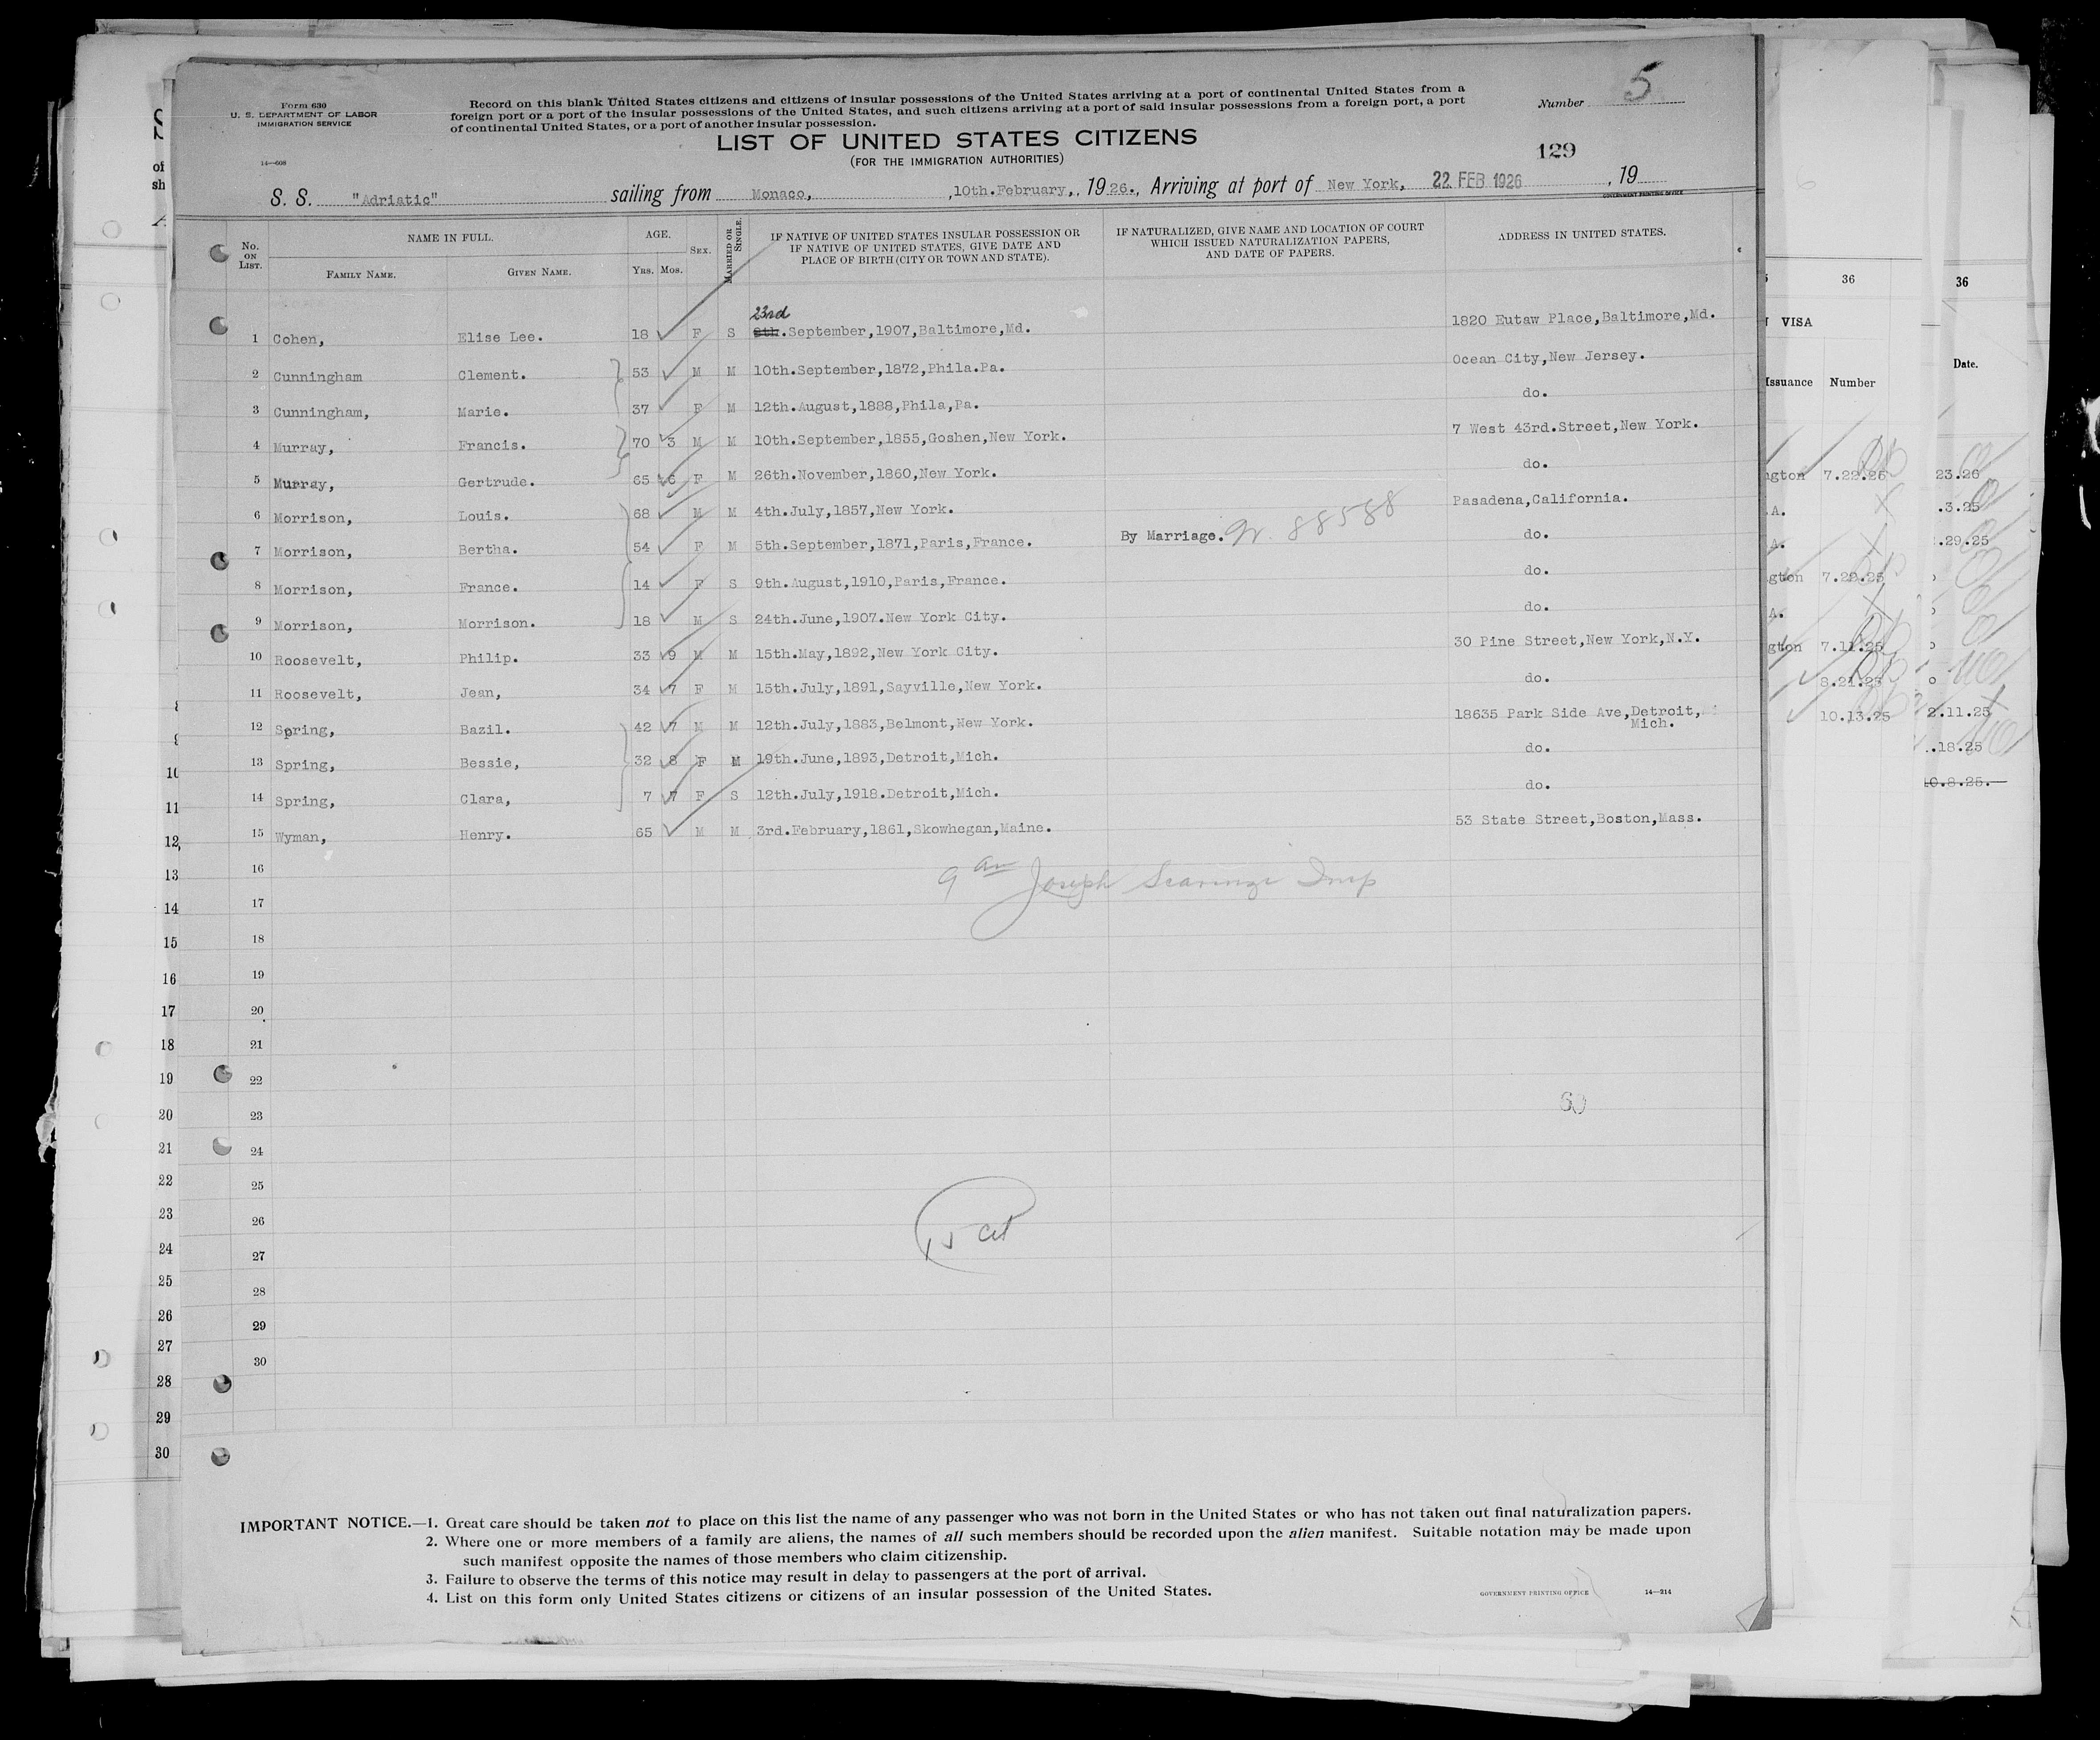 Form 630
U. S. DEPARTMENT OF LABOR
IMMIGRATION SERVICE
14—608
Record on this blank United States citizens and citizens of insular possessions of the United States arriving at a port of continental United States from a
foreign port or a port of the insular possessions of the United States, and such citizens arriving at a port of said insular possessions from a foreign port, a port
of continental United States, or a port of another insular possession.
Number 5
LIST OF UNITED STATES CITIZENS
(FOR THE IMMIGRATION AUTHORITIES)
129
S. S. "Adriatic" sailing from Monaco, ,10th.February,, 1926., Arriving at port of New York, 22 FEB 1926 , 19
GOVERNMENT PRINTING OFFICE
No. ON LIST. NAME IN FULL. FAMILY NAME. GIVEN NAME. AGE. YRS. MOS. SEX. MARRIED OR SINGLE. IF NATIVE OF UNITED STATES INSULAR POSSESSION OR IF NATIVE OF UNITED STATES, GIVE DATE AND PLACE OF BIRTH (CITY OR TOWN AND STATE). IF NATURALIZED, GIVE NAME AND LOCATION OF COURT WHICH ISSUED NATURALIZATION PAPERS, AND DATE OF PAPERS. ADDRESS IN UNITED STATES.
23rd
1 Cohen, Elise Lee. 18 F S 8th.September,1907,Baltimore,Md. 1820 Eutaw Place,Baltimore,Md.
2 Cunningham Clement. 53 M M 10th.September,1872,Phila.Pa. Ocean City,New Jersey.
3 Cunningham, Marie. 37 F M 12th.August,1888,Phila,Pa. do.
4 Murray, Francis. 70 3 M M 10th.September,1855,Goshen,New York. 7 West 43rd.Street,New York.
5 Murray, Gertrude. 65 6 F M 26th.November,1860,New York. do.
6 Morrison, Louis. 68 M M 4th.July,1857,New York. Pasadena,California.
7 Morrison, Bertha. 54 F M 5th.September,1871,Paris,France. By Marriage. 88588 do.
8 Morrison, France. 14 F S 9th.August,1910,Paris,France. do.
9 Morrison, Morrison. 18 M S 24th.June,1907.New York City. do.
10 Roosevelt, Philip. 33 9 M M 15th.May,1892,New York City. 30 Pine Street,New York,N.Y.
11 Roosevelt, Jean, 34 7 F M 15th.July,1891,Sayville,New York. do.
12 Spring, Bazil. 42 7 M M 12th.July,1883,Belmont,New York. 18635 Park Side Ave,Detroit,
Mich.
13 Spring, Bessie, 32 8 F M 19th.June,1893,Detroit,Mich. do.
14 Spring, Clara, 7 7 F S 12th.July,1918.Detroit,Mich. do.
15 Wyman, Henry. 65 M M 3rd.February,1861,Skowhegan,Maine. 53 State Street,Boston,Mass.
16
9 am Joseph Insp
17
18
19
20
21
22
23
60
24
25
26
15 cit
27
28
29
30
IMPORTANT NOTICE.—1. Great care should be taken not to place on this list the name of any passenger who was not born in the United States or who has not taken out final naturalization papers.
2. Where one or more members of a family are aliens, the names of all such members should be recorded upon the alien manifest. Suitable notation may be made upon
such manifest opposite the names of those members who claim citizenship.
3. Failure to observe the terms of this notice may result in delay to passengers at the port of arrival.
4. List on this form only United States citizens or citizens of an insular possession of the United States.
GOVERNMENT PRINTING OFFICE 14—214
of
sh
10
11
12
13
14
15
16
17
18
19
20
21
22
23
24
25
26
27
28
29
30
36
VISA
Issuance Number
7.22.25
7.22.25
7.11.25
8.21.25
10.13.25
36
Date.
23.26
.3.25
.29.25
2.11.25
.18.25
10.8.25.